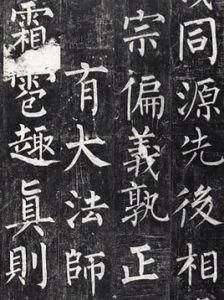 同源先後相
宗偏義孰正
有大法師
霜雹趣眞則